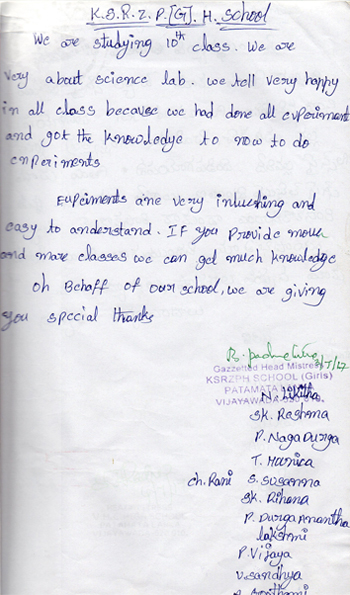 K.S.R.Z.P.[G].H. School
We are studying 10th class. We are
very about science lab. we tell very happy
in all class because we had done all experiment
and got the knowledge to now to do
enperiments
Eupeiments are very intushing and
easy to anderstand. If you provide more
and more classes we can get much knowledge
Oh Behaff of our school, we are giving
you special thanks
Gazzetted Head Mistress
KSRZPH SCHOOL (Girls)
PATAMATA
VIJAYAWADA
N. Likitha
SK. Rashma
P. Naga Durga
T. Mounica
ch. Rani S. Susanna
SK. Rihana
P. Durga Anantha
lakshmi
P. Vijaya
V. Sandhya